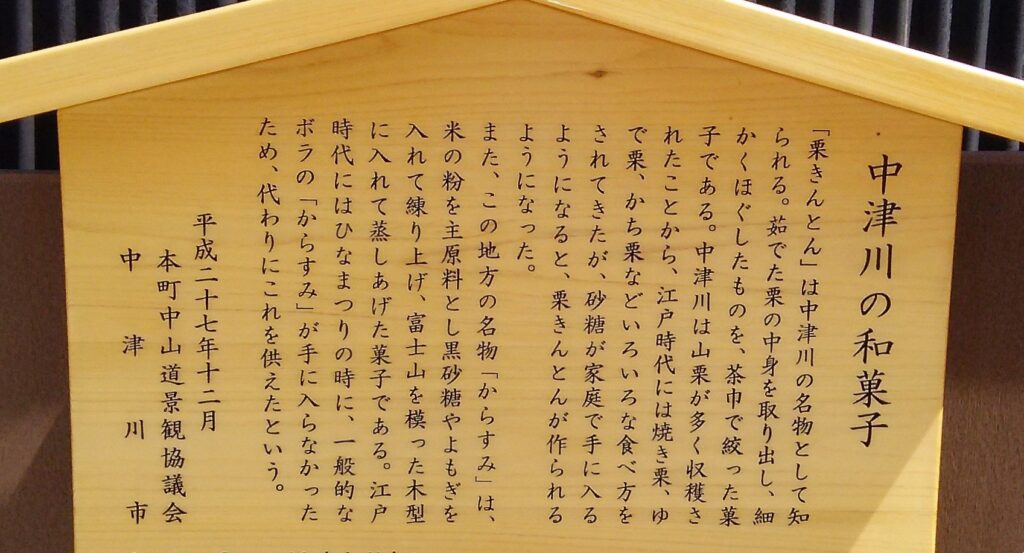 中津川の和菓子
「栗きんとん」は中津川の名物として知
られる。茹でた栗の中身を取り出し、細
かくほぐしたものを、茶巾で絞った菓
子である。中津川は山栗が多く収穫さ
れたことから、江戸時代には焼き栗、ゆ
で栗、かち栗などいろいろな食べ方を
されてきたが、砂糖が家庭で手に入る
ようになると、栗きんとんが作られる
ようになった。
また、この地方の名物「からすみ」は、
米の粉を主原料とし黒砂糖やよもぎを
入れて練り上げ、富士山を模った木型
に入れて蒸しあげた菓子である。江戸
時代にはひなまつりの時に、一般的な
ボラの「からすみ」が手に入らなかった
ため、代わりにこれを供えたという。
平成二十七年十二月
本町中山道景観協議会
中津川市